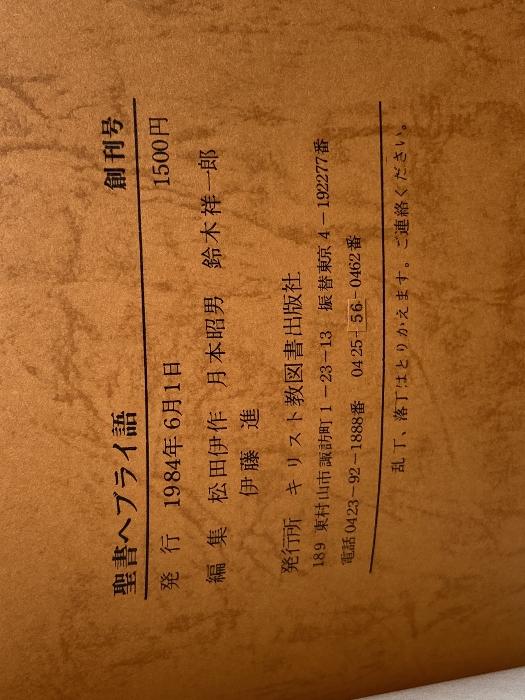 聖書ヘブライ語 創刊号
発行 1984年6月1日 1500円
編集 松田伊作 月本昭男 鈴木祥一郎
伊藤進
発行所 キリスト教図書出版社
189 東村山市諏訪町1−23−13 振替東京4−192277番
電話0423−92−1888番 0425−56−0462番
乱丁、落丁はとりかえます。ご連絡ください。